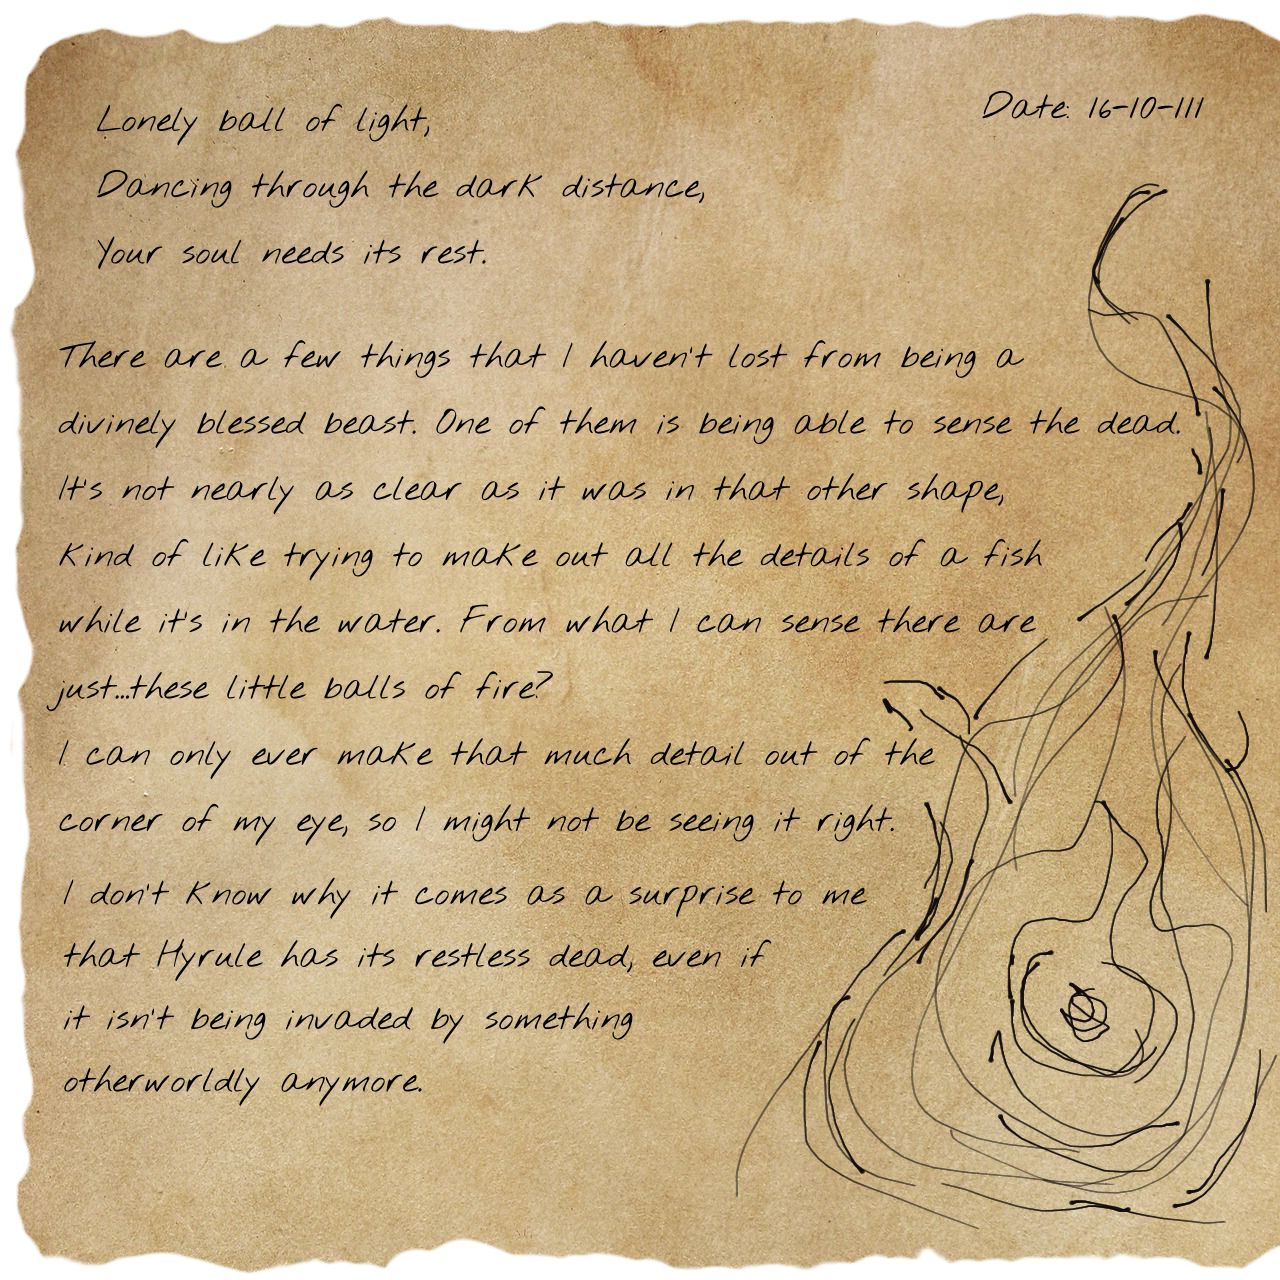 Lonely ball of light,
Date: 16-10-111
Dancing through the dark distance,
Your soul needs its rest.
There are a few things that I haven't lost from being a
divinely blessed beast. One of them is being able to sense the dead.
It's not nearly as clear as it was in that other shape,
Kind of like trying to make out all the details of a fish
while it's in the water. From what I can sense there are
just...these little balls of fire?
I can only ever make that much detail out of the
corner of my eye, so I might not be seeing it right.
I don't know why it comes as a surprise to me
that Hyrule has its restless dead, even if
it isn't being invaded by something
otherworldly anymore.